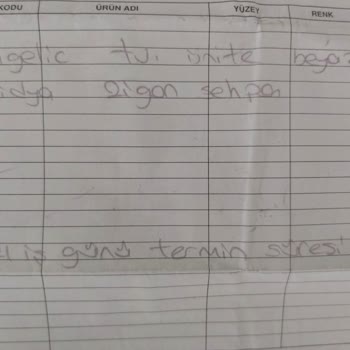 KODU ÜRÜN ADI YÜZEY RENK
gelic tv. ünite beyaz
idya zigon sehpa
iş günü termin süresi